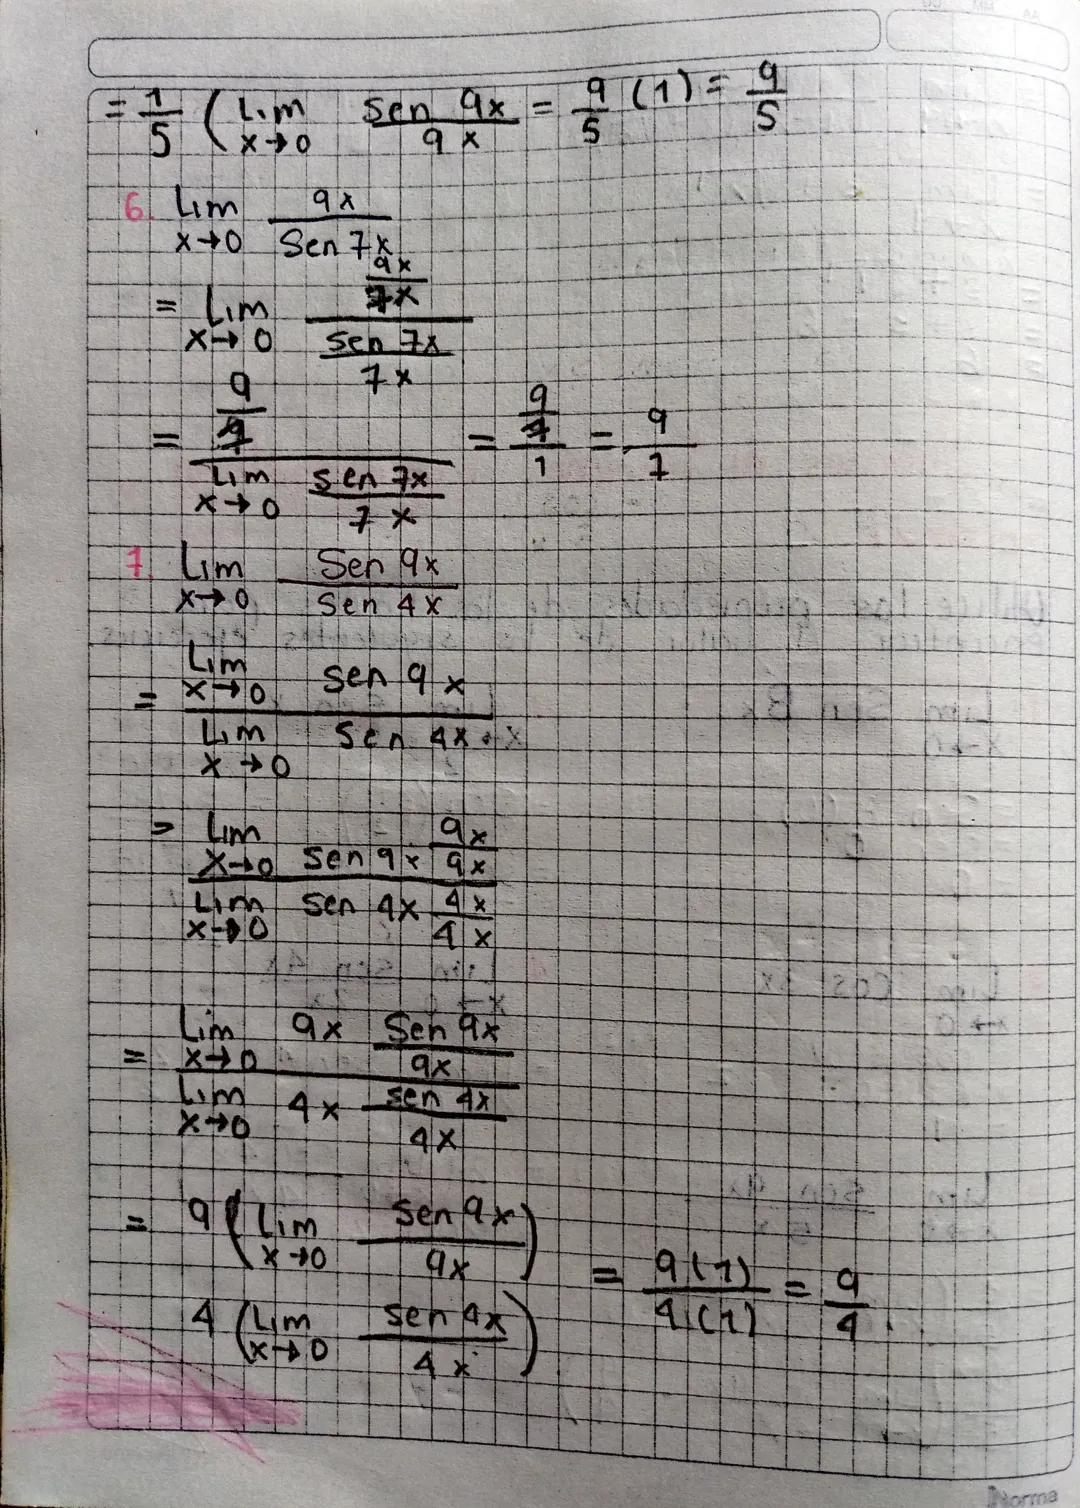 = 1/5 ( Lim x→0 sen 9x / 9x = 9/5 (1) = 9/5
6. Lim x→0 9x / Sen 7x
= Lim x→0 (9x / 7x) / (sen 7x / 7x)
= (9/7) / (Lim x→0 sen 7x / 7x) = (9/7) / 1 = 9/7
7. Lim x→0 Sen 9x / Sen 4x
= Lim x→0 sen 9x / Lim x→0 sen 4x
= Lim x→0 sen 9x 9x/9x / Lim x→0 sen 4x 4x/4x
= Lim x→0 9x Sen 9x / 9x / Lim x→0 4x sen 4x / 4x
= 9 ( Lim x→0 sen 9x / 9x ) / 4 ( Lim x→0 sen 4x / 4x ) = 9(1) / 4(1) = 9/4 .
Norma